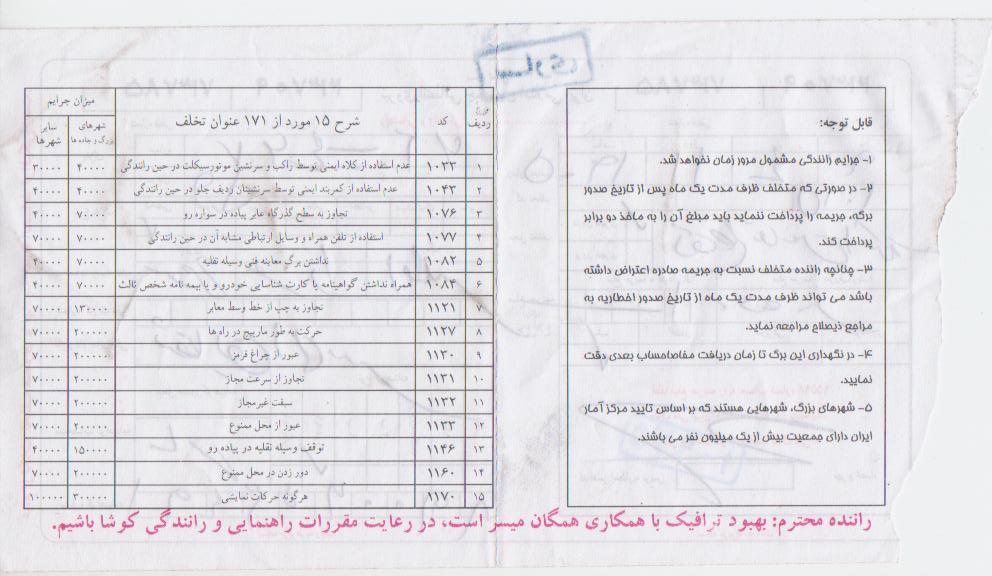 ساری
قابل توجه:
۱- جرایم رانندگی مشمول مرور زمان نخواهد شد.
۲- در صورتی که متخلف ظرف مدت یک ماه پس از تاریخ صدور
برگه، جریمه را پرداخت ننماید باید مبلغ آن را به ماخذ دو برابر
پرداخت کند.
۳- چنانچه راننده متخلف نسبت به جریمه صادره اعتراض داشته
باشد می تواند ظرف مدت یک ماه از تاریخ صدور اخطاریه به
مراجع ذیصلاح مراجعه نماید.
۴- در نگهداری این برگ تا زمان دریافت مفاصاحساب بعدی دقت
نمایید.
۵- شهرهای بزرگ، شهرهایی هستند که بر اساس تایید مرکز آمار
ایران دارای جمعیت بیش از یک میلیون نفر می باشند.
ردیف کد شرح ۱۵ مورد از ۱۷۱ عنوان تخلف میزان جرایم
شهرهای بزرگ و جاده ها سایر شهرها
۱ ۱۰۳۳ عدم استفاده از کلاه ایمنی توسط راکب و سرنشین موتورسیکلت در حین رانندگی ۴۰۰۰۰ ۳۰۰۰۰
۲ ۱۰۴۳ عدم استفاده از کمربند ایمنی توسط سرنشینان ردیف جلو در حین رانندگی ۴۰۰۰۰ ۴۰۰۰۰
۳ ۱۰۷۶ تجاوز به سطح گذرگاه عابر پیاده در سواره رو ۷۰۰۰۰ ۴۰۰۰۰
۴ ۱۰۷۷ استفاده از تلفن همراه و وسایل ارتباطی مشابه آن در حین رانندگی ۷۰۰۰۰ ۷۰۰۰۰
۵ ۱۰۸۲ نداشتن برگ معاینه فنی وسیله نقلیه ۷۰۰۰۰ ۴۰۰۰۰
۶ ۱۰۸۴ همراه نداشتن گواهینامه یا کارت شناسایی خودرو و یا بیمه نامه شخص ثالث ۷۰۰۰۰ ۴۰۰۰۰
۷ ۱۱۲۱ تجاوز به چپ از خط وسط معابر ۱۳۰۰۰۰ ۷۰۰۰۰
۸ ۱۱۲۷ حرکت به طور مارپیچ در راه ها ۲۰۰۰۰۰ ۷۰۰۰۰
۹ ۱۱۳۰ عبور از چراغ قرمز ۲۰۰۰۰۰ ۷۰۰۰۰
۱۰ ۱۱۳۱ تجاوز از سرعت مجاز ۲۰۰۰۰۰ ۷۰۰۰۰
۱۱ ۱۱۳۲ سبقت غیرمجاز ۲۰۰۰۰۰ ۷۰۰۰۰
۱۲ ۱۱۳۳ عبور از محل ممنوع ۲۰۰۰۰۰ ۷۰۰۰۰
۱۳ ۱۱۴۶ توقف وسیله نقلیه در پیاده رو ۱۵۰۰۰۰ ۴۰۰۰۰
۱۴ ۱۱۶۰ دور زدن در محل ممنوع ۲۰۰۰۰۰ ۷۰۰۰۰
۱۵ ۱۱۷۰ هرگونه حرکات نمایشی ۳۰۰۰۰۰ ۱۰۰۰۰۰
راننده محترم: بهبود ترافیک با همکاری همگان میسر است، در رعایت مقررات راهنمایی و رانندگی کوشا باشیم.